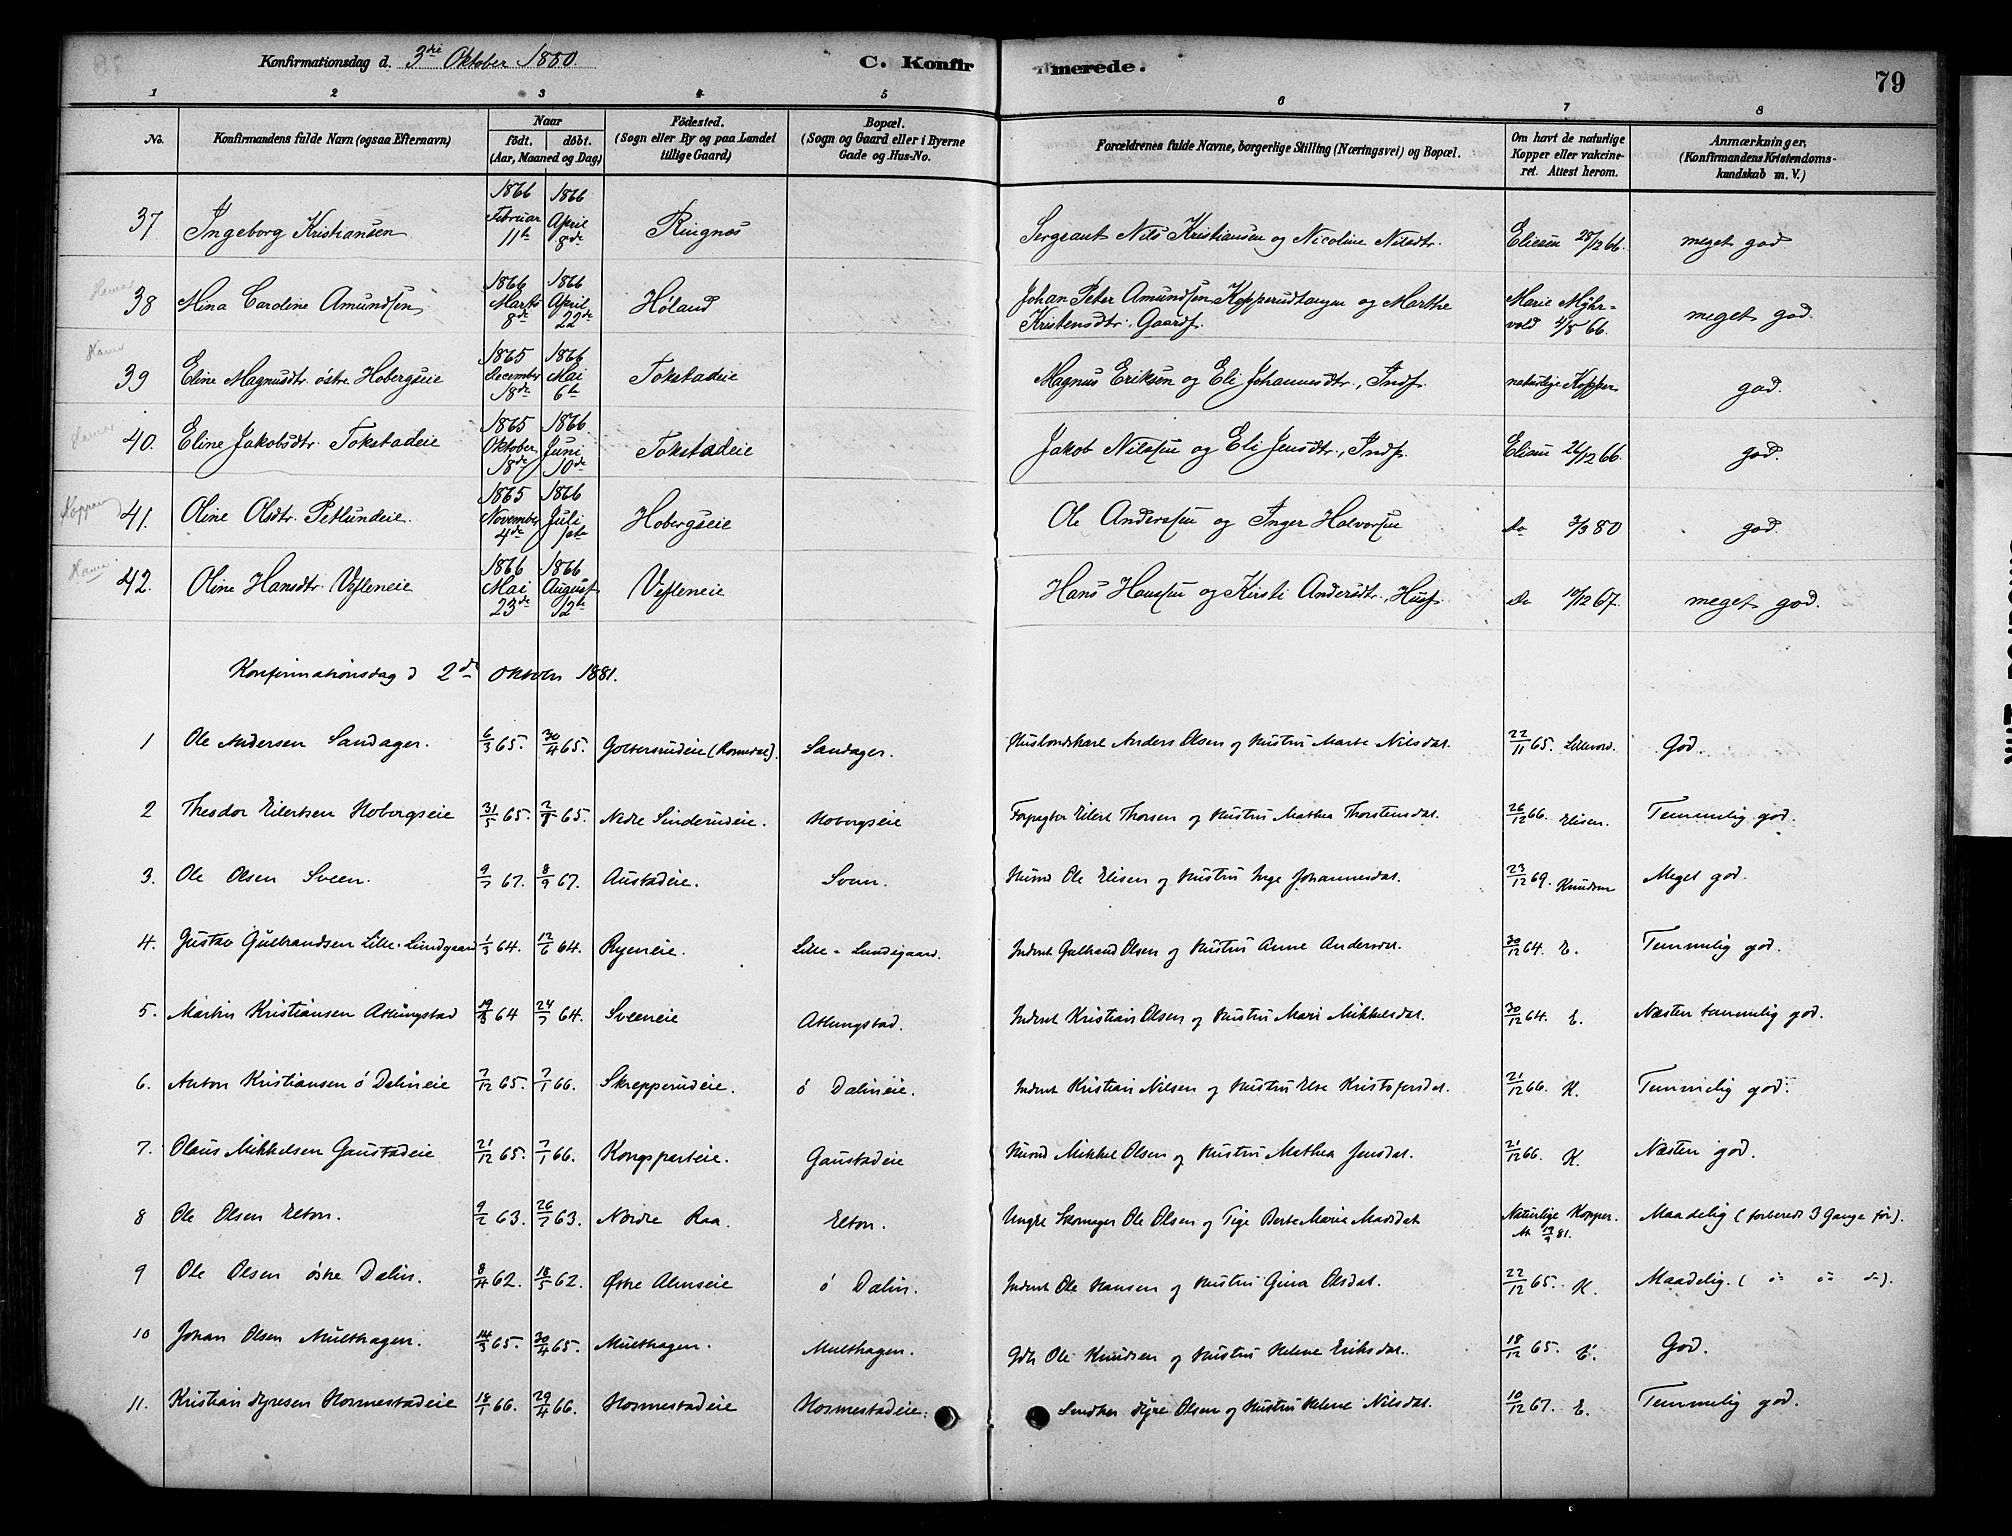 Konfirmationsdag d. 3die Oktober 1880.
C. Konfirmerede.
79
1 2 3 4 5 6 7 8
No.
Konfirmandens fulde Navn (ogsaa Efternavn)
Naar
født. døbt.
(Aar, Maaned og Dag)
Fødested.
(Sogn eller By og paa Landet
tillige Gaard)
Bopæl.
(Sogn og Gaard eller i Byerne
Gade og Hus-No.
Forældrenes fulde Navne, borgerlige Stilling (Næringsvei) og Bopæl.
Om havt de naturlige
Kopper eller vakcine-
ret. Attest herom.
Anmærkninger.
(Konfirmandens Kristendoms-
kundskab m. V.)
37 Ingeborg Kristiansen 1866 Februar 11te 1866 April 8de Ringnæs Sergeant Nils Kristiansen og Nicoline Nilsdtr. Eliesen 28/12 66. meget god
38 Mina Caroline Amundsen 1866 Marts 8de 1866 April 22de Høland Johan Peter Amundsen Kopperudtangen og Marthe
Kristensdtr. Gaardf. Marie Myhr-
vold 4/5 66. meget god.
39 Eline Magnusdtr. østre Hobergseie 1865 December 18de 1866 Mai 6te Tokstadeie Magnus Eriksen og Eli Johannesdtr., Indf. naturlige Kopper god.
40. Eline Jakobsdtr. Tokstadeie 1865 Oktober 18de 1866 Juni 10de Tokstadeie Jakob Nilssen og Eli Jensdtr., Indf. Eliesen 26/12 66. god.
41. Oline Olsdtr. Petlundeie. 1865 November 4de 1866 Juli 1ste Hobergseie Ole Anderssen og Inger Halvorsen Do 3/3 80 god.
42. Oline Hansdtr. Vefleneie 1866 Mai 23de 1866 August 12te Vefleneie Hans Hanssen og Kirsti Andersdtr., Husf. Do 10/12 67. meget god.
Konfirmationsdag d 2de Oktober 1881.
1 Ole Andersen Sandager. 6/3 65. 30/4 65. (Romedal). Sandager. Anders Olsen og Hustru Marte Nilsdat. 22/11 65. Lillevold. God.
2 Theodor Eilertsen Hobergseie 31/5 65. 65. Nedre Sinderudeie. Hobergseie Forpagter Eilert Thorsen og Hustru Mathea Thorstensdat. 26/12 66. Elisen. Temmelig god.
3. Ole Olsen Sveen. 9/7 67. 8/9 67. Austadeie. Sveen. Husmd Ole Elisen og Hustru Inge Johannesdat. 23/12 69. Knudsen Meget god.
4. Gustav Gulbrandsen Lille-Lundgaard 1/3 64. 12/6 64. Ryeneie. Lille-Lundegaard. Inderst Gulbrand Olsen og Hustru Anne Andersdat. 30/12 64. E. Temmelig god.
5. Martin Kristiansen Atlungstad 19/3 64 24/7 64. Sveeneie Atlungstad. Inderst Kristian Olsen og Hustru Mari Mikkelsdat. 30/12 64. E. Næsten temmelig god.
6. Anton Kristiansen ø Dalineie 7/12 65. 7/1 66. Skrepperudeie. ø Dalineie. Inderst Kristian Nilsen og Hustru Else Kristofersdat. 21/12 66. K. Temmelig god.
7. Olaus Mikkelsen Gaustadeie 21/12 65. 7/1 66. Kongsparteie. Gaustadeie Husmd Mikkel Olsen og Hustru Mathea Jensdat. 21/12 66. K. Næsten god.
8 Ole Olsen Elton. 9/2 63. 26/7 63. Nordre Raa. Elton. Ungkr Skomager Ole Olsen og Pige Berte Marie Madsdat Naturlige Kopper.
At 19/9 81. Maadelig (forberedt 3 Gange før).
9 Ole Olsen østre Dalin. 8/4 62. 18/5 62. Østre Almseie ø Dalin. Inderst Ole Hansen og Hustru Gina Olsdat. 22/12 65. K. Maadelig.
10 Johan Olsen Multhagen. 14/3 65. 30/4 65. Multhagen. Multhagen. Gdb Ole Knudsen og Hustru Helene Eriksdat. 18/12 65. E. God.
11. Kristian Syvesen Hosmestadeie 18/1 66. 29/4 66. Hosmestadeie Hosmestadeie. Olsen og Hustru Helene Nilsdat. 10/12 67. E. Temmelig god.